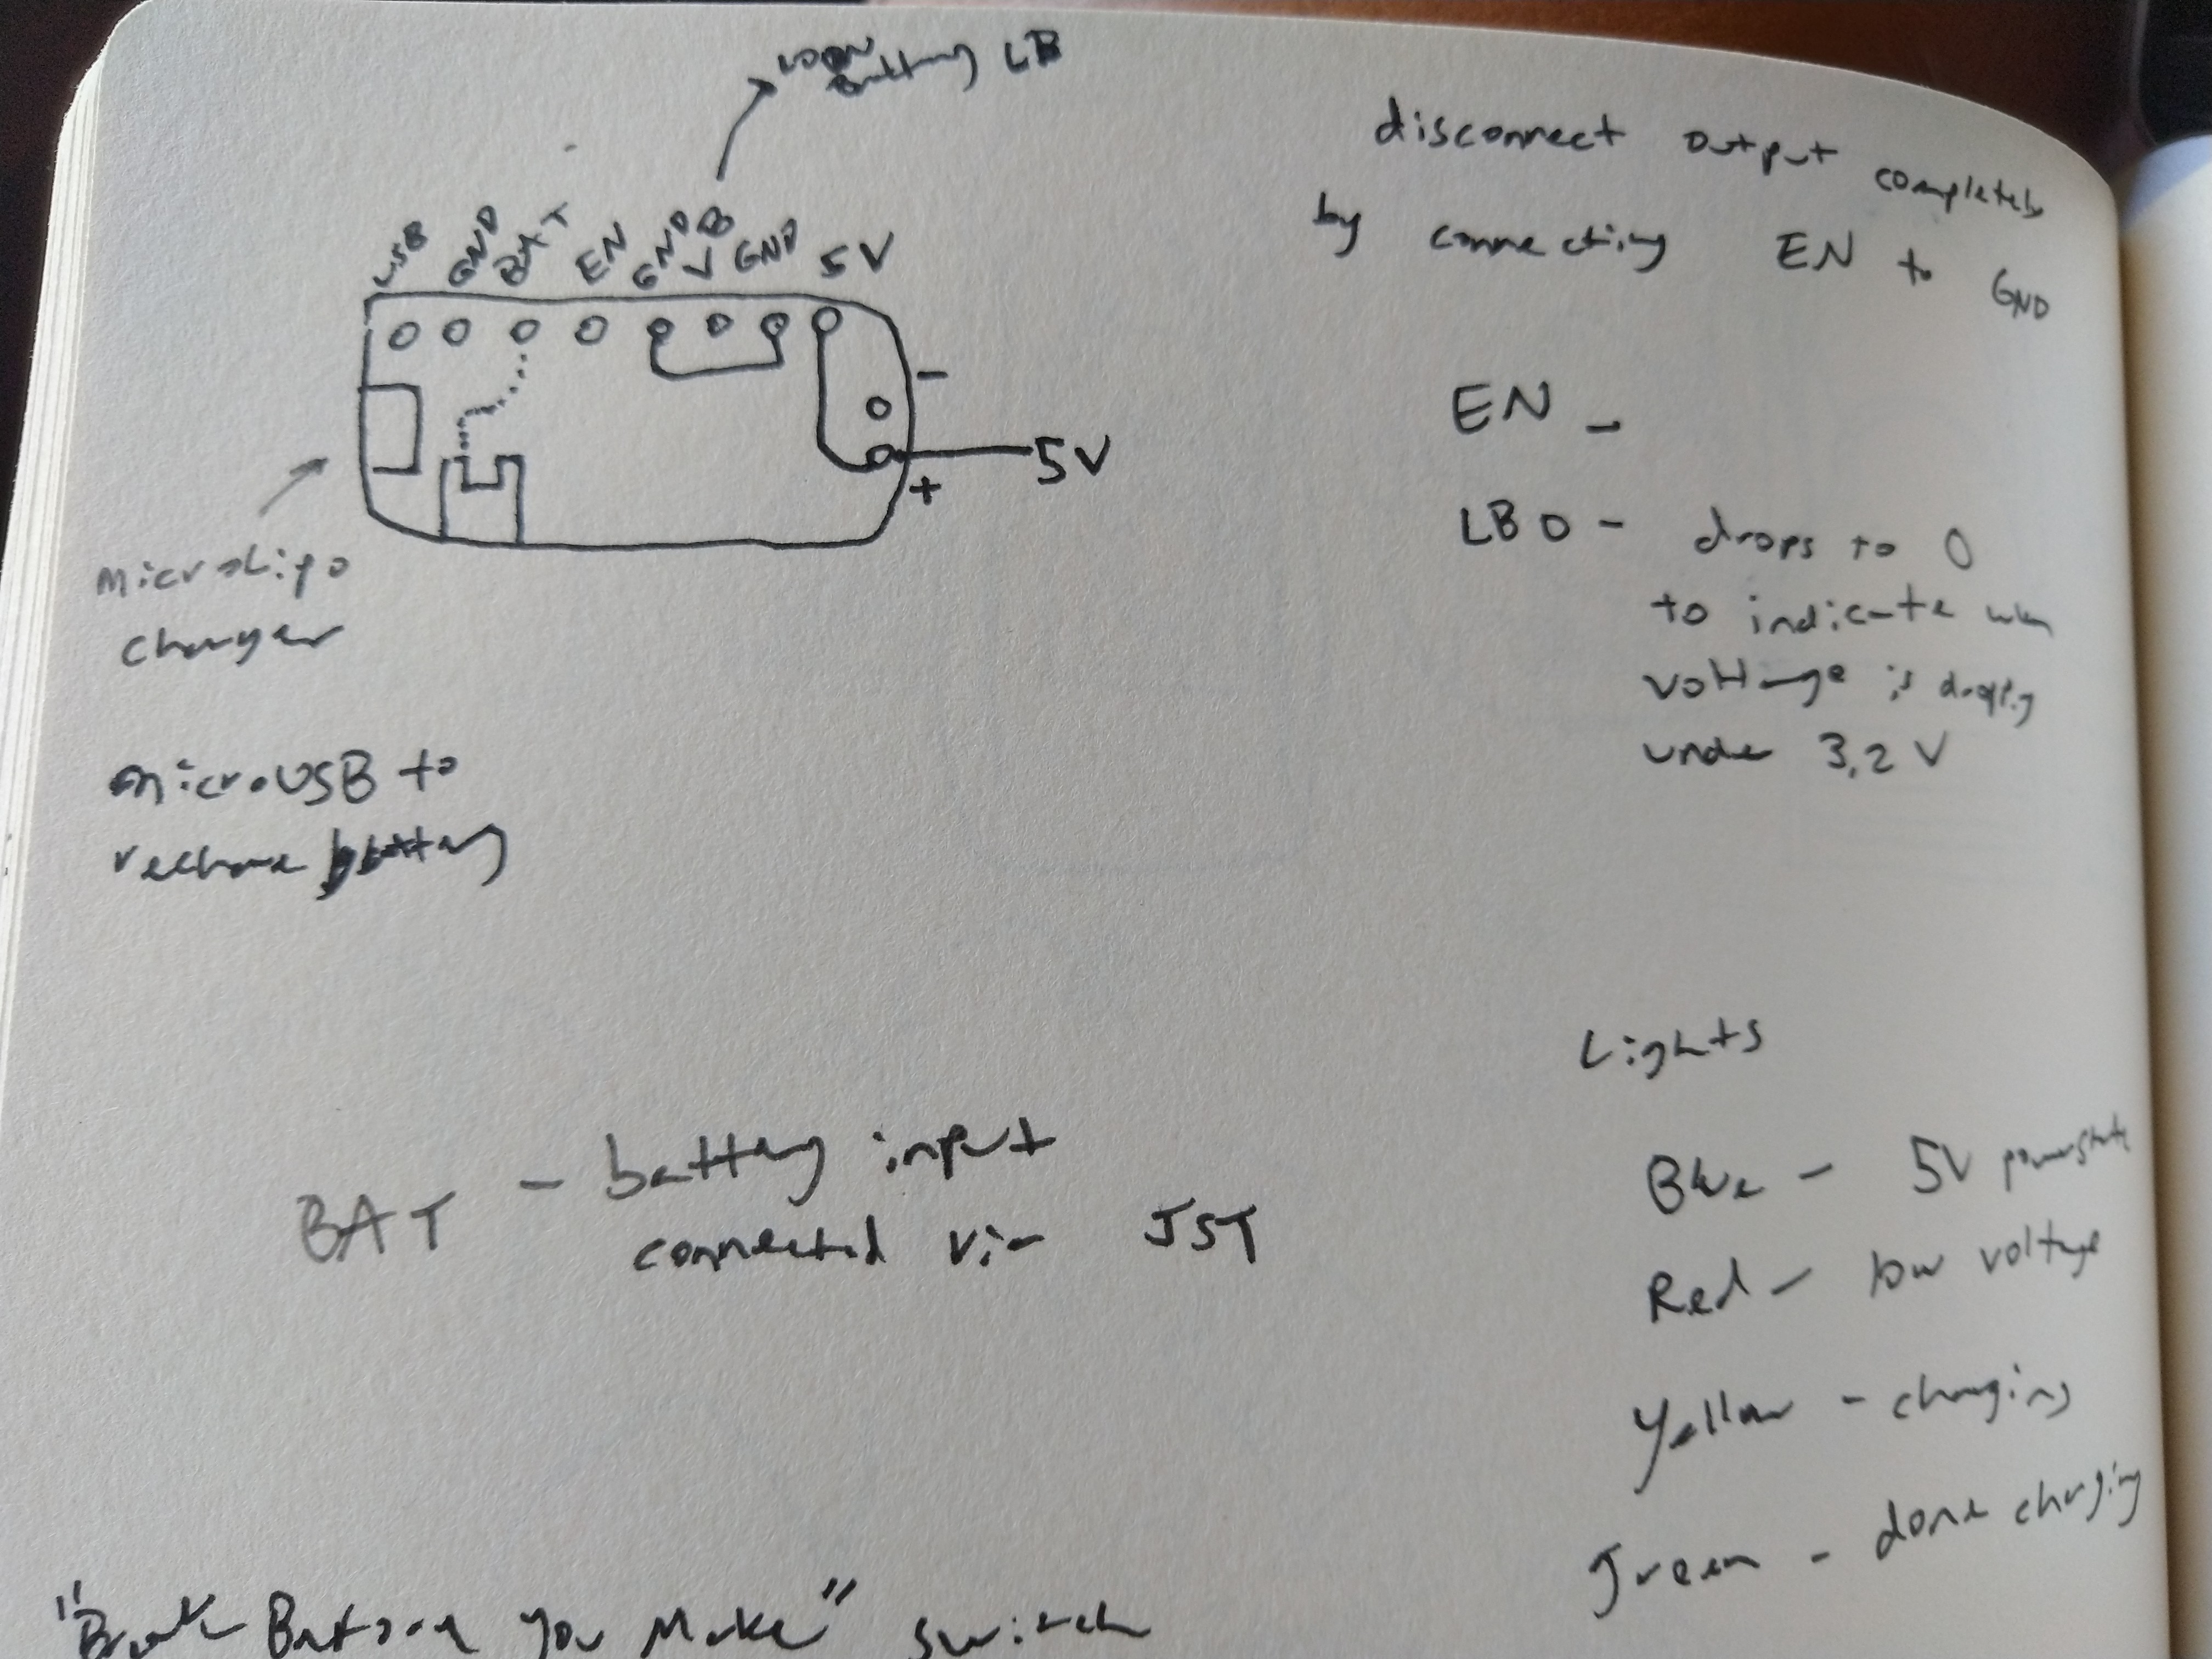 Battery LB
USB GND BAT EN GND VB GND 5V
-
5V
+
microLipo
charger
microUSB to
recharge battery
disconnect output completely
by connecting EN to GND
EN -
LBO - drops to 0
to indicate when
voltage is dropping
under 3.2 V
BAT - battery input
connected via JST
Lights
Blue - 5V
Red - low voltage
Yellow - charging
green - done charging
"Break Before you Make" switch